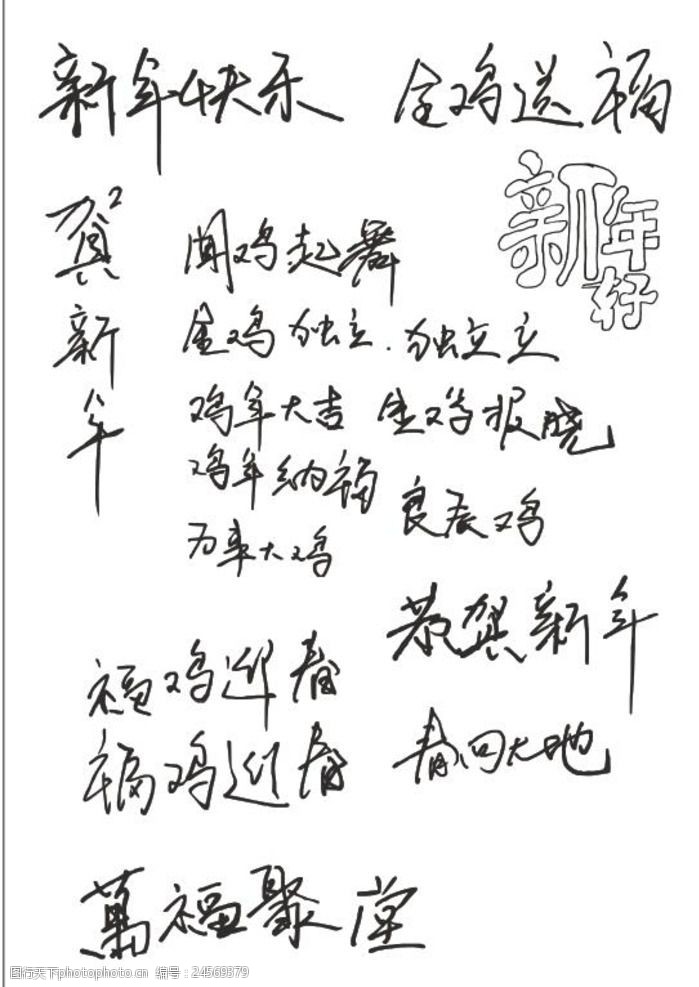 新年快乐 金鸡送福
贺新年
新年好
闻鸡起舞
金鸡独立.独立立
鸡年大吉 金鸡报晓
鸡年纳福 良辰鸡
万事大鸡
恭贺新年
福鸡迎春
福鸡迎春 春回大地
萬福聚堂
图行天下photophoto.cn 编号:24569379